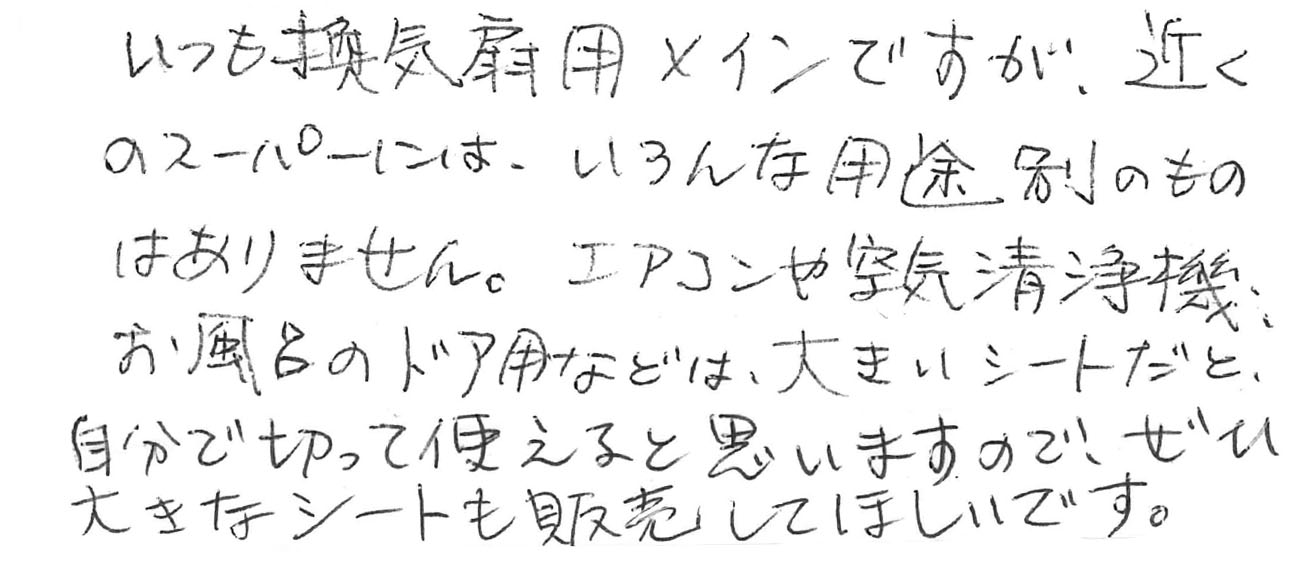 いつも換気扇用メインですが、近く
のスーパーには、いろんな用途別のもの
はありません。エアコンや空気清浄機、
お風呂のドア用などは、大きいシートだと、
自分で切って使えると思いますので、ぜひ
大きなシートも販売してほしいです。